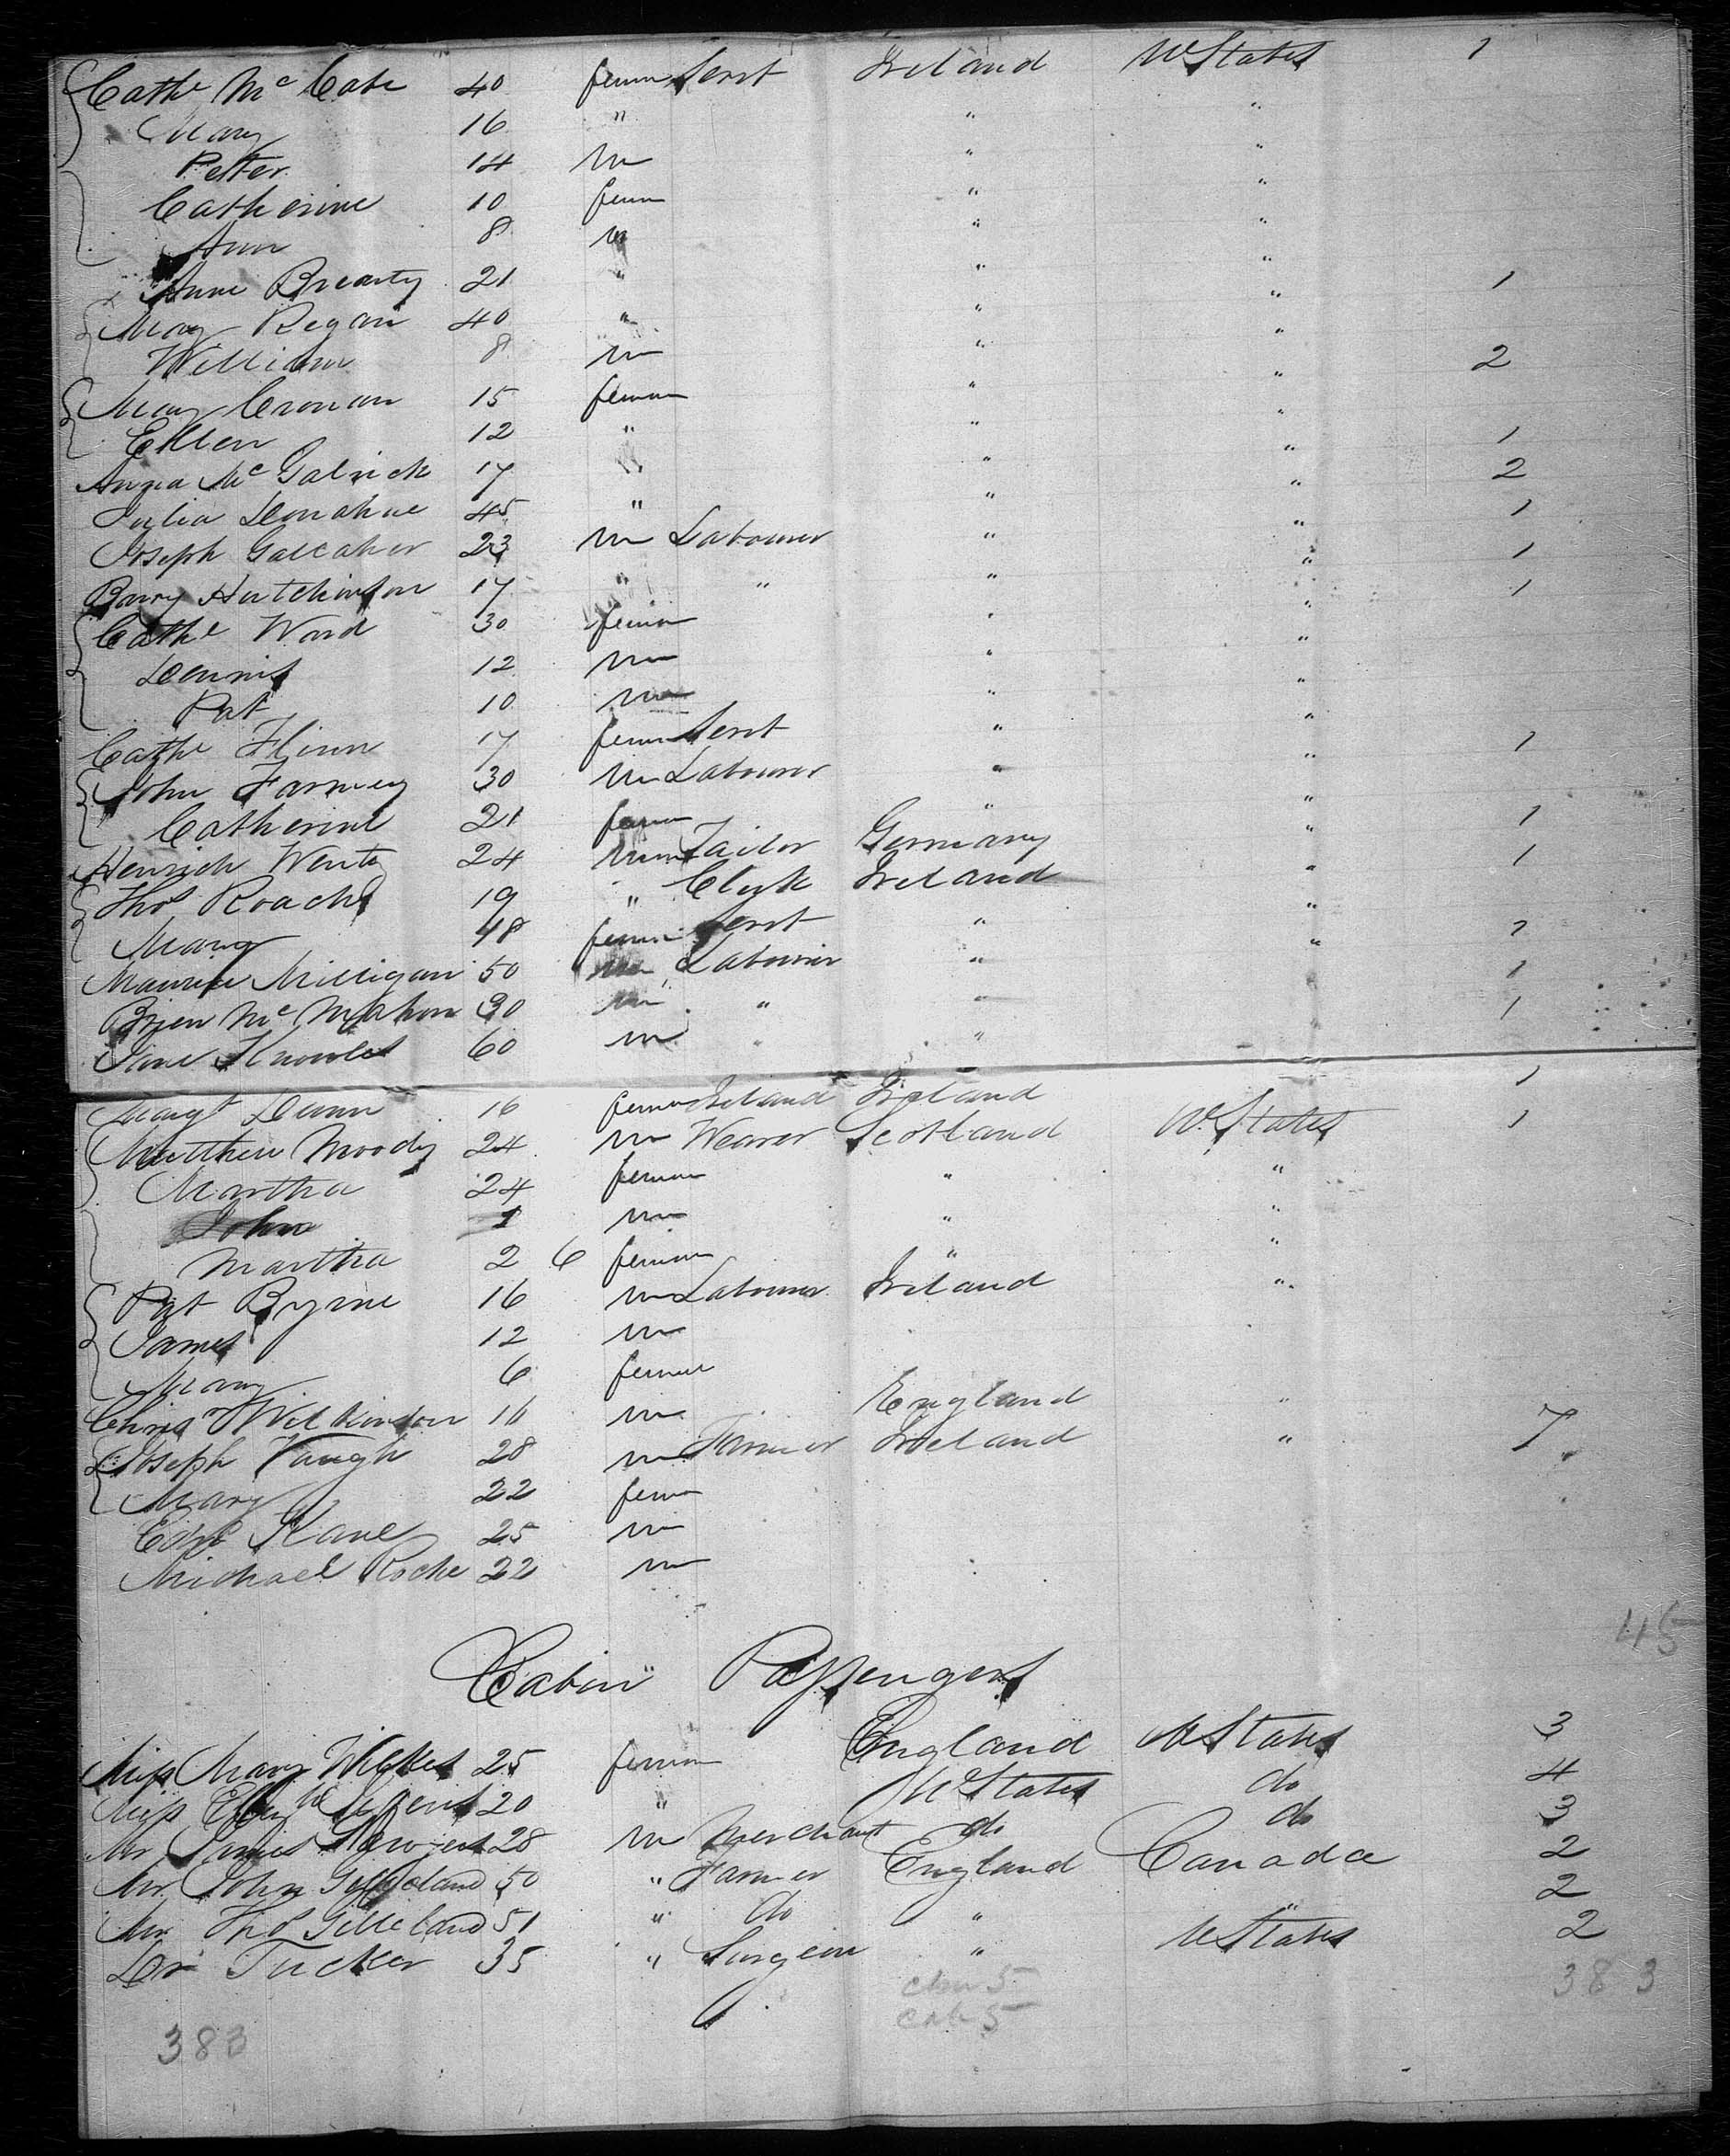 Cathe McCabe 40 fem Servt Ireland UStates 1
Mary 16 " " "
Petter 14 m " "
Catherine 10 fem " "
Ann 8 " "
Anne Brearty 21 " " " 1
Mary Regan 40 " " "
William 8 m " " 2
Mary Cronan 15 fem " "
Ellen 12 " " " 1
Anna McGolrick 17 " " " 2
Julia Donahue 45 " " " 1
Joseph Gallaher 23 m Labourer " " 1
Barry Hutchinson 17 " " " " 1
Cathe Ward 30 fem " "
Dennis 12 m " "
Pat 10 m " "
Cathe Flinn 17 fem Servt " " 1
John Farmey 30 m Labourer " "
Catherine 21 fem " " 1
Henrich Wentz 24 m Tailor Germany " 1
Thos Roach 19 " Clerk Ireland "
Mary 48 fem Servt " "
Maurice Milligan 50 m Labourer " " 1
Brien McMahon 30 m " " " 1
Jane Knowles 60 m " "
Margt Dunn 16 fem Ireland Ireland 1
Matthew Moody 24 m Weaver Scotland U.States 1
Martha 24 fem " "
John 1 m " "
Martha 2 6 fem " "
Pat Byrne 16 m Labourer Ireland "
James 12 m
Mary 6 fem
Chrisr Wilkinson 16 m England "
Joseph Vaugh 28 m Farmer Ireland " 7
Mary 22 fem
Edwd Kane 25 m
Michael Roche 22 m
45
Cabin Passengers
Miss Mary Wilkes 25 fem England UStates 3
Miss 20 " UStates do 4
Mr James 28 m Merchant do do 3
Mr John Gilleland 50 " Farmer England Canada 2
Mr Thos Gilleland 51 " do " " 2
Dr Tucker 35 " Surgeon " UStates 2
5 383
383 5